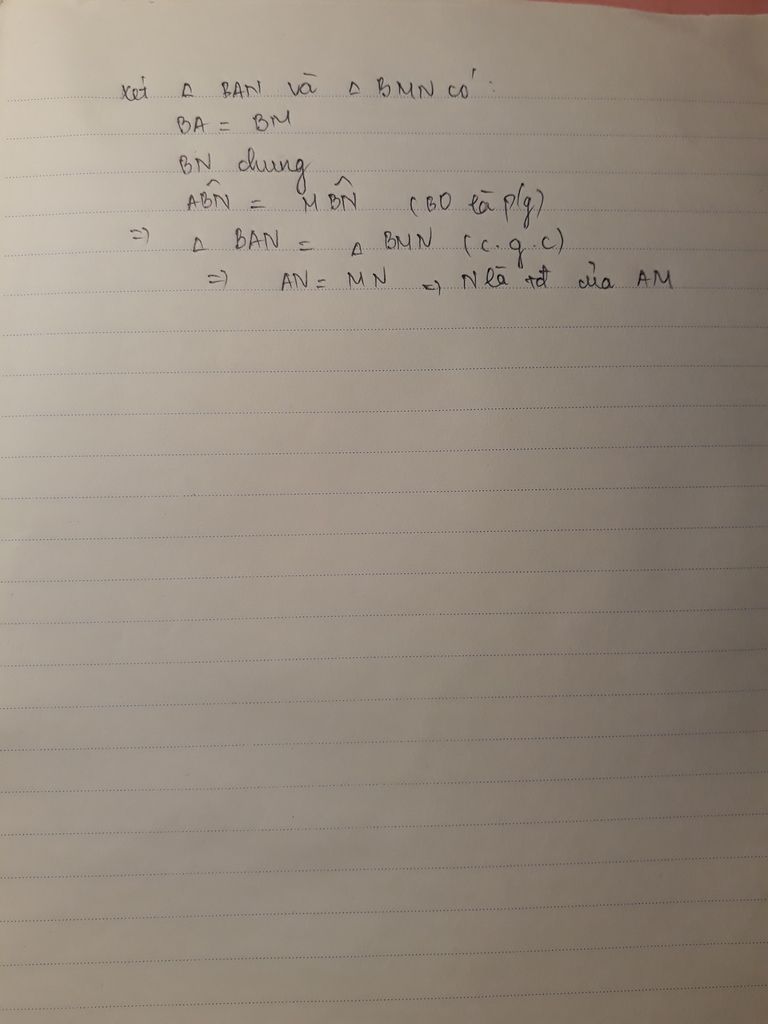 Xét Δ BAN và Δ BMN có :
BA = BM
BN chung
AB̂N = MB̂N (BO là p/g)
=> Δ BAN = Δ BMN (c.g.c)
=> AN = MN => N là tđ của AM